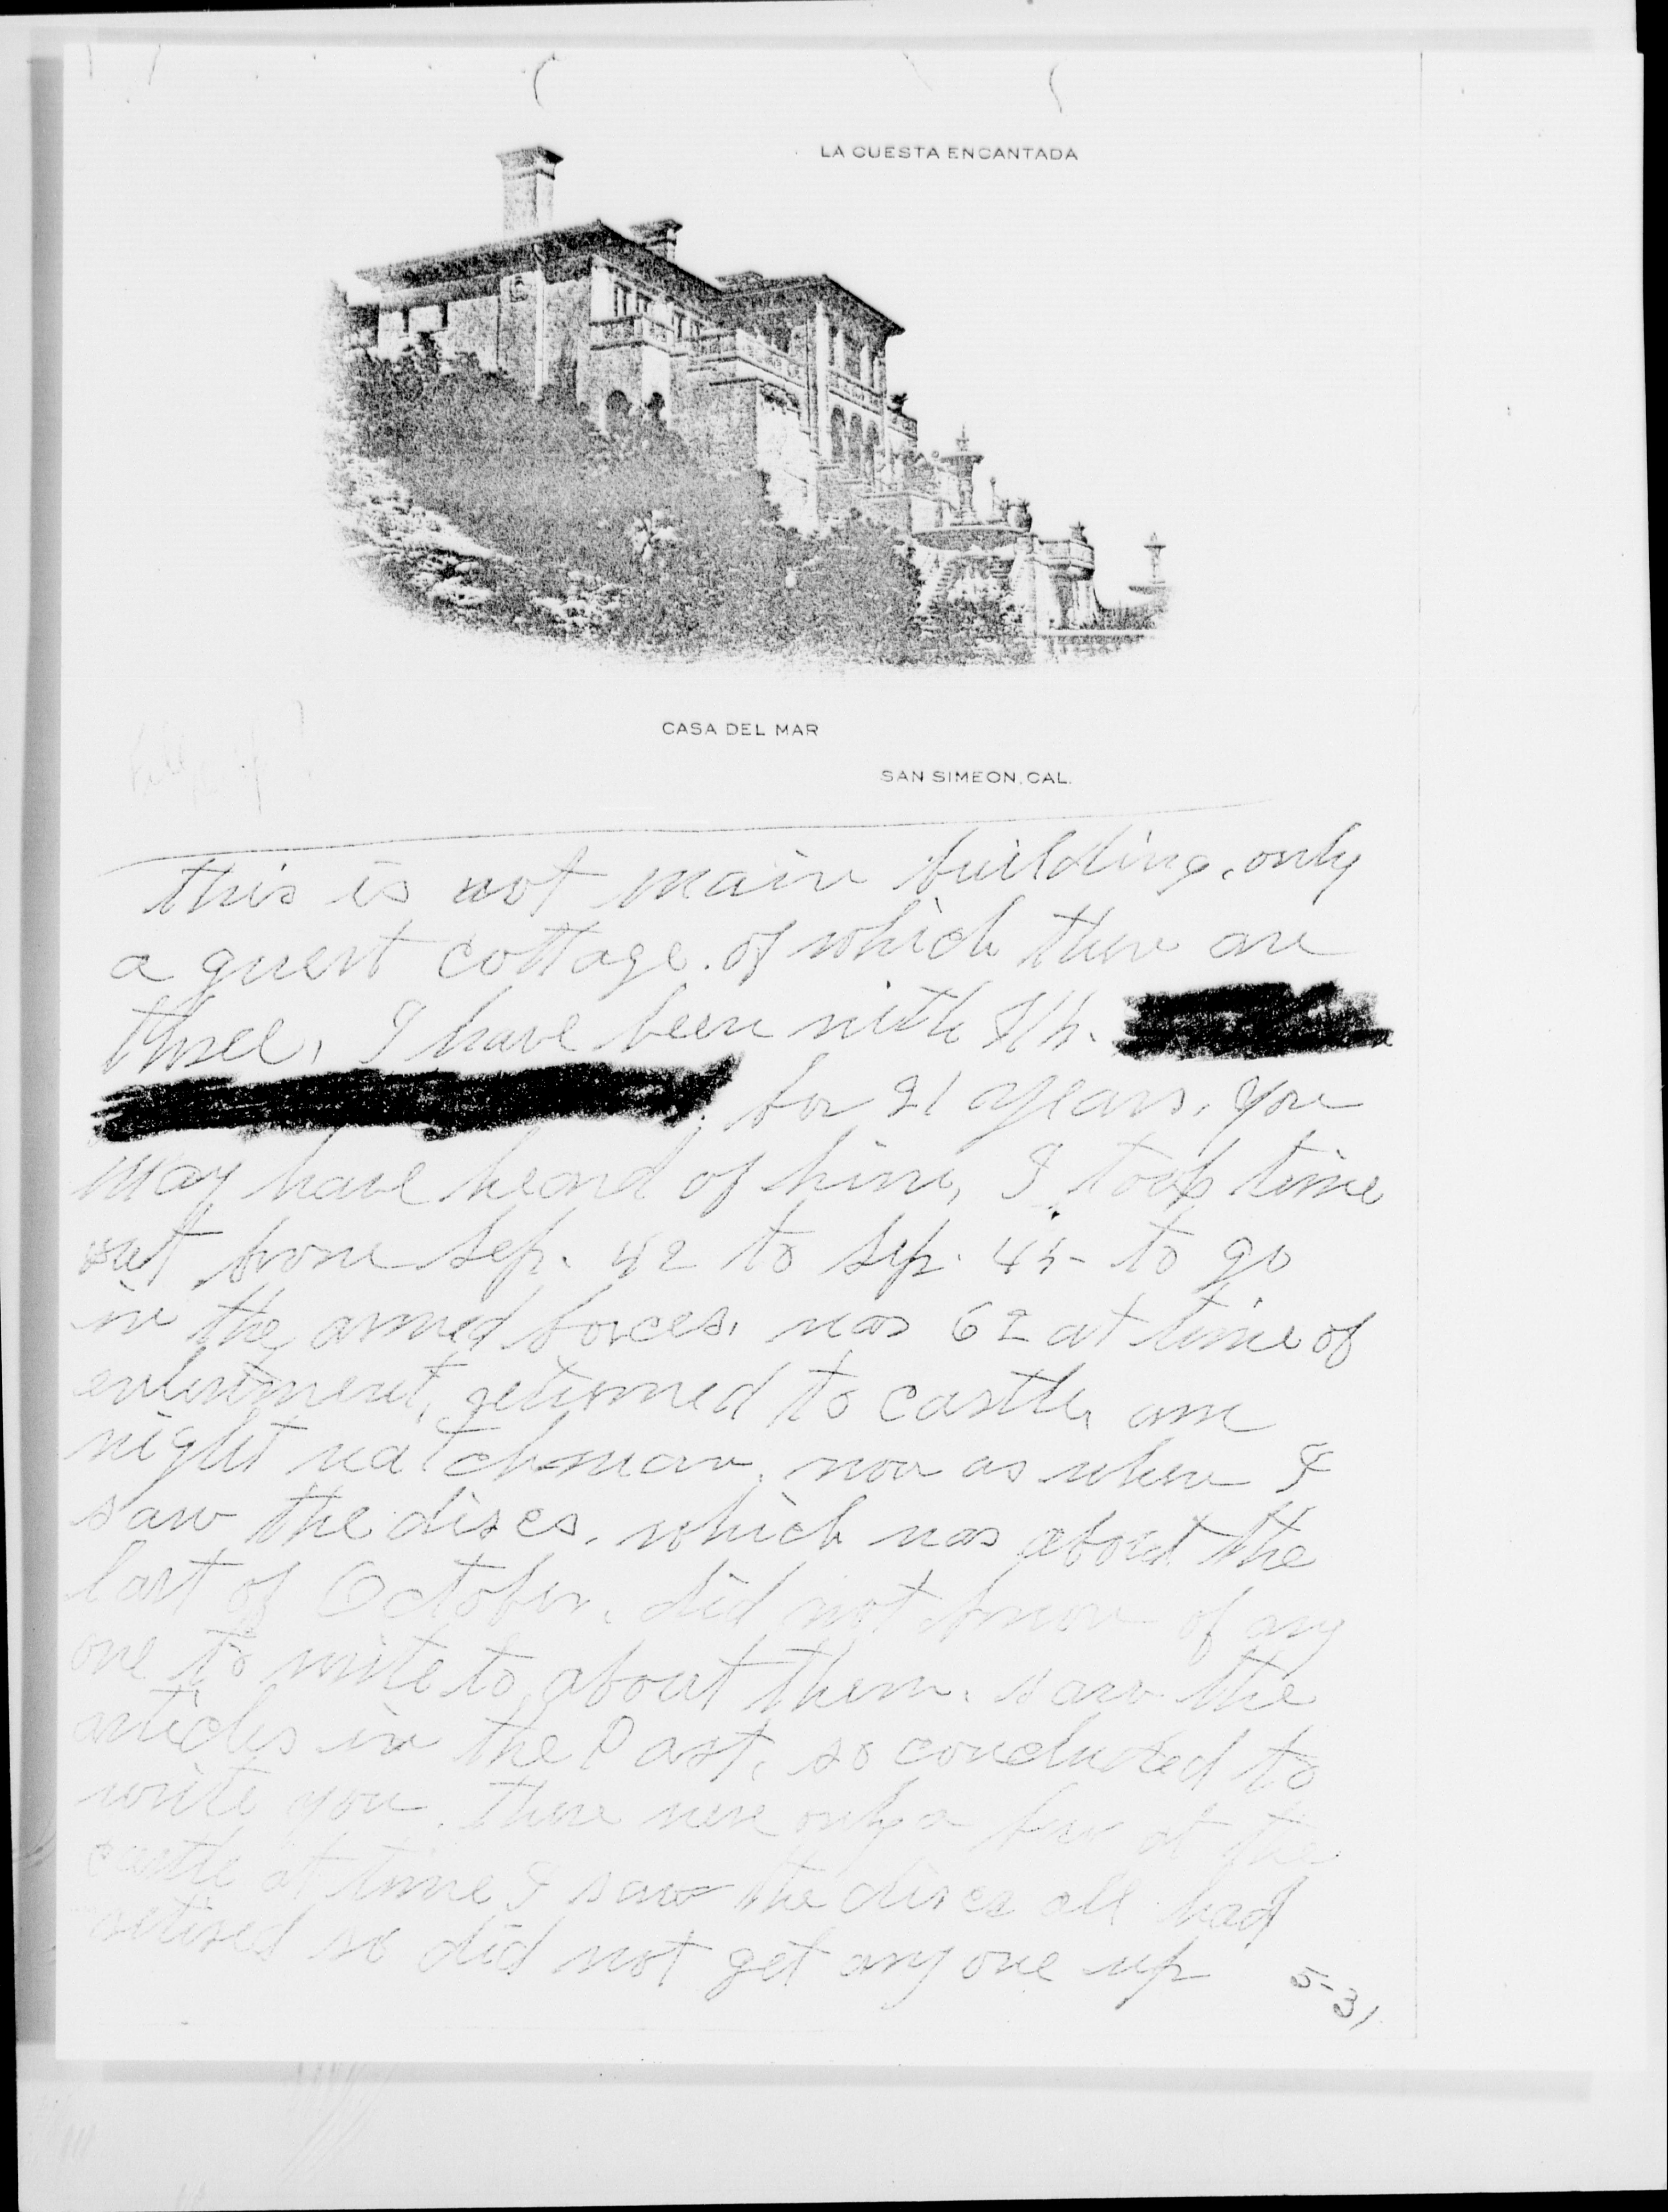 LA CUESTA ENCANTADA
CASA DEL MAR
SAN SIMEON, CAL.
this is not main building, only
a guest cottage. of which there are
three, I have been with
for 21 years, you
may have heard of him, I took time
out from Sep. 42 to Sep. 45 to go
in the armed forces, was 62 at time of
enlistment, returned to castle, am
night watchman, now as when I
saw the discs, which was about the
last of October, did not know of any
one to write to about them. saw the
articles in the Post, so concluded to
write you. there were only a few at the
castle at time I saw the discs all had
retired so did not get any one up
5-31